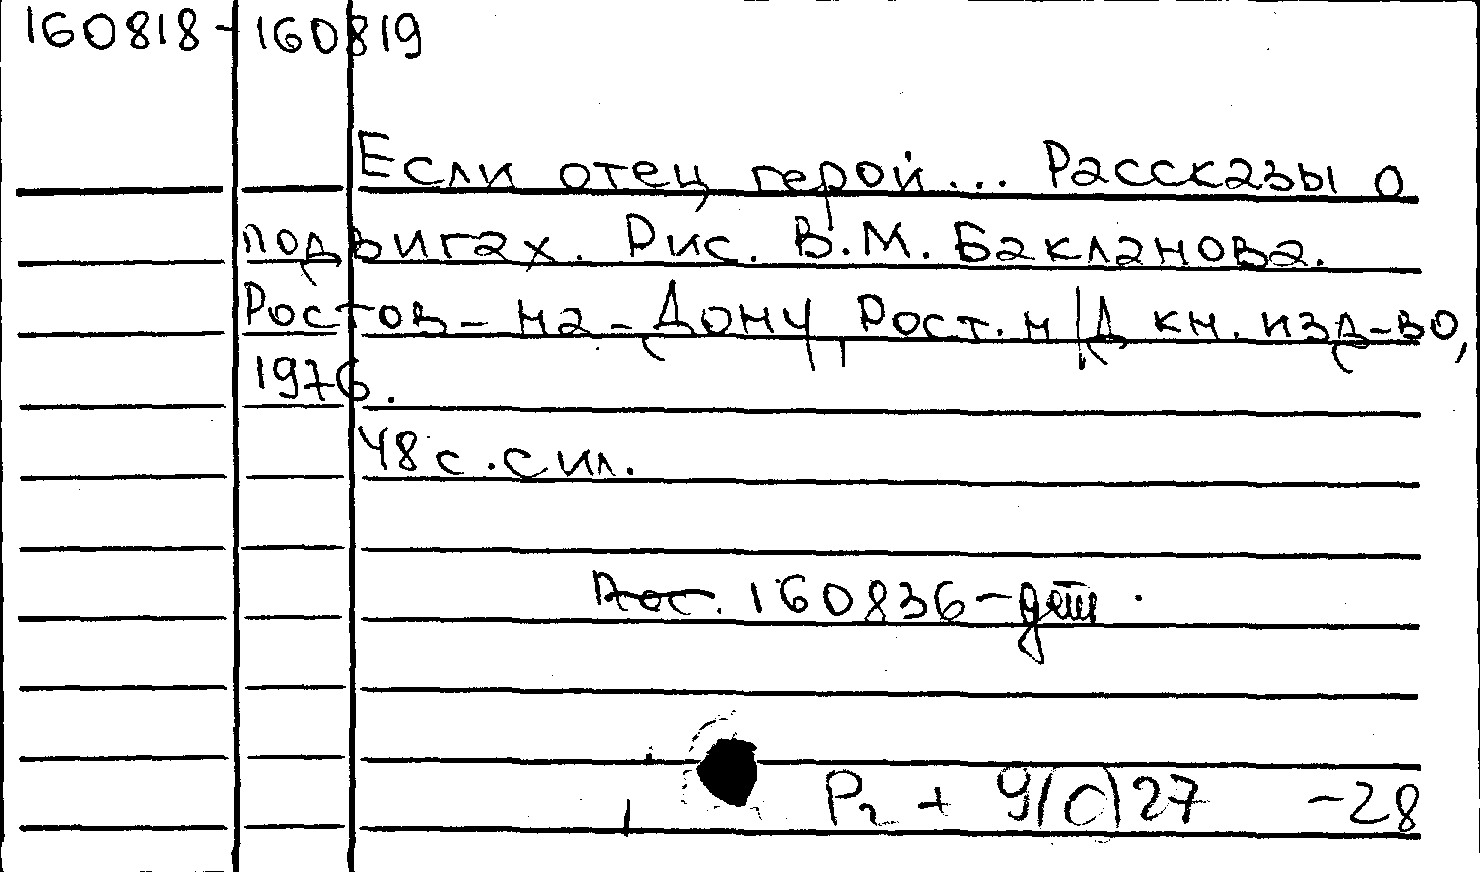 160818-160819
Если отец герой... Рассказы о
подвигах. Рис. В.М. Бакланова.
Ростов-на-Дону, Рост. н/Д кн. изд-во,
1976.
48 с. с ил.
160836-дет.
Р2 + 9(С)27 -28